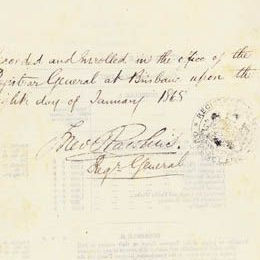 corded and Enrolled in the office of the
egistrar General at Brisbane upon the
day of January 1865
Regr General